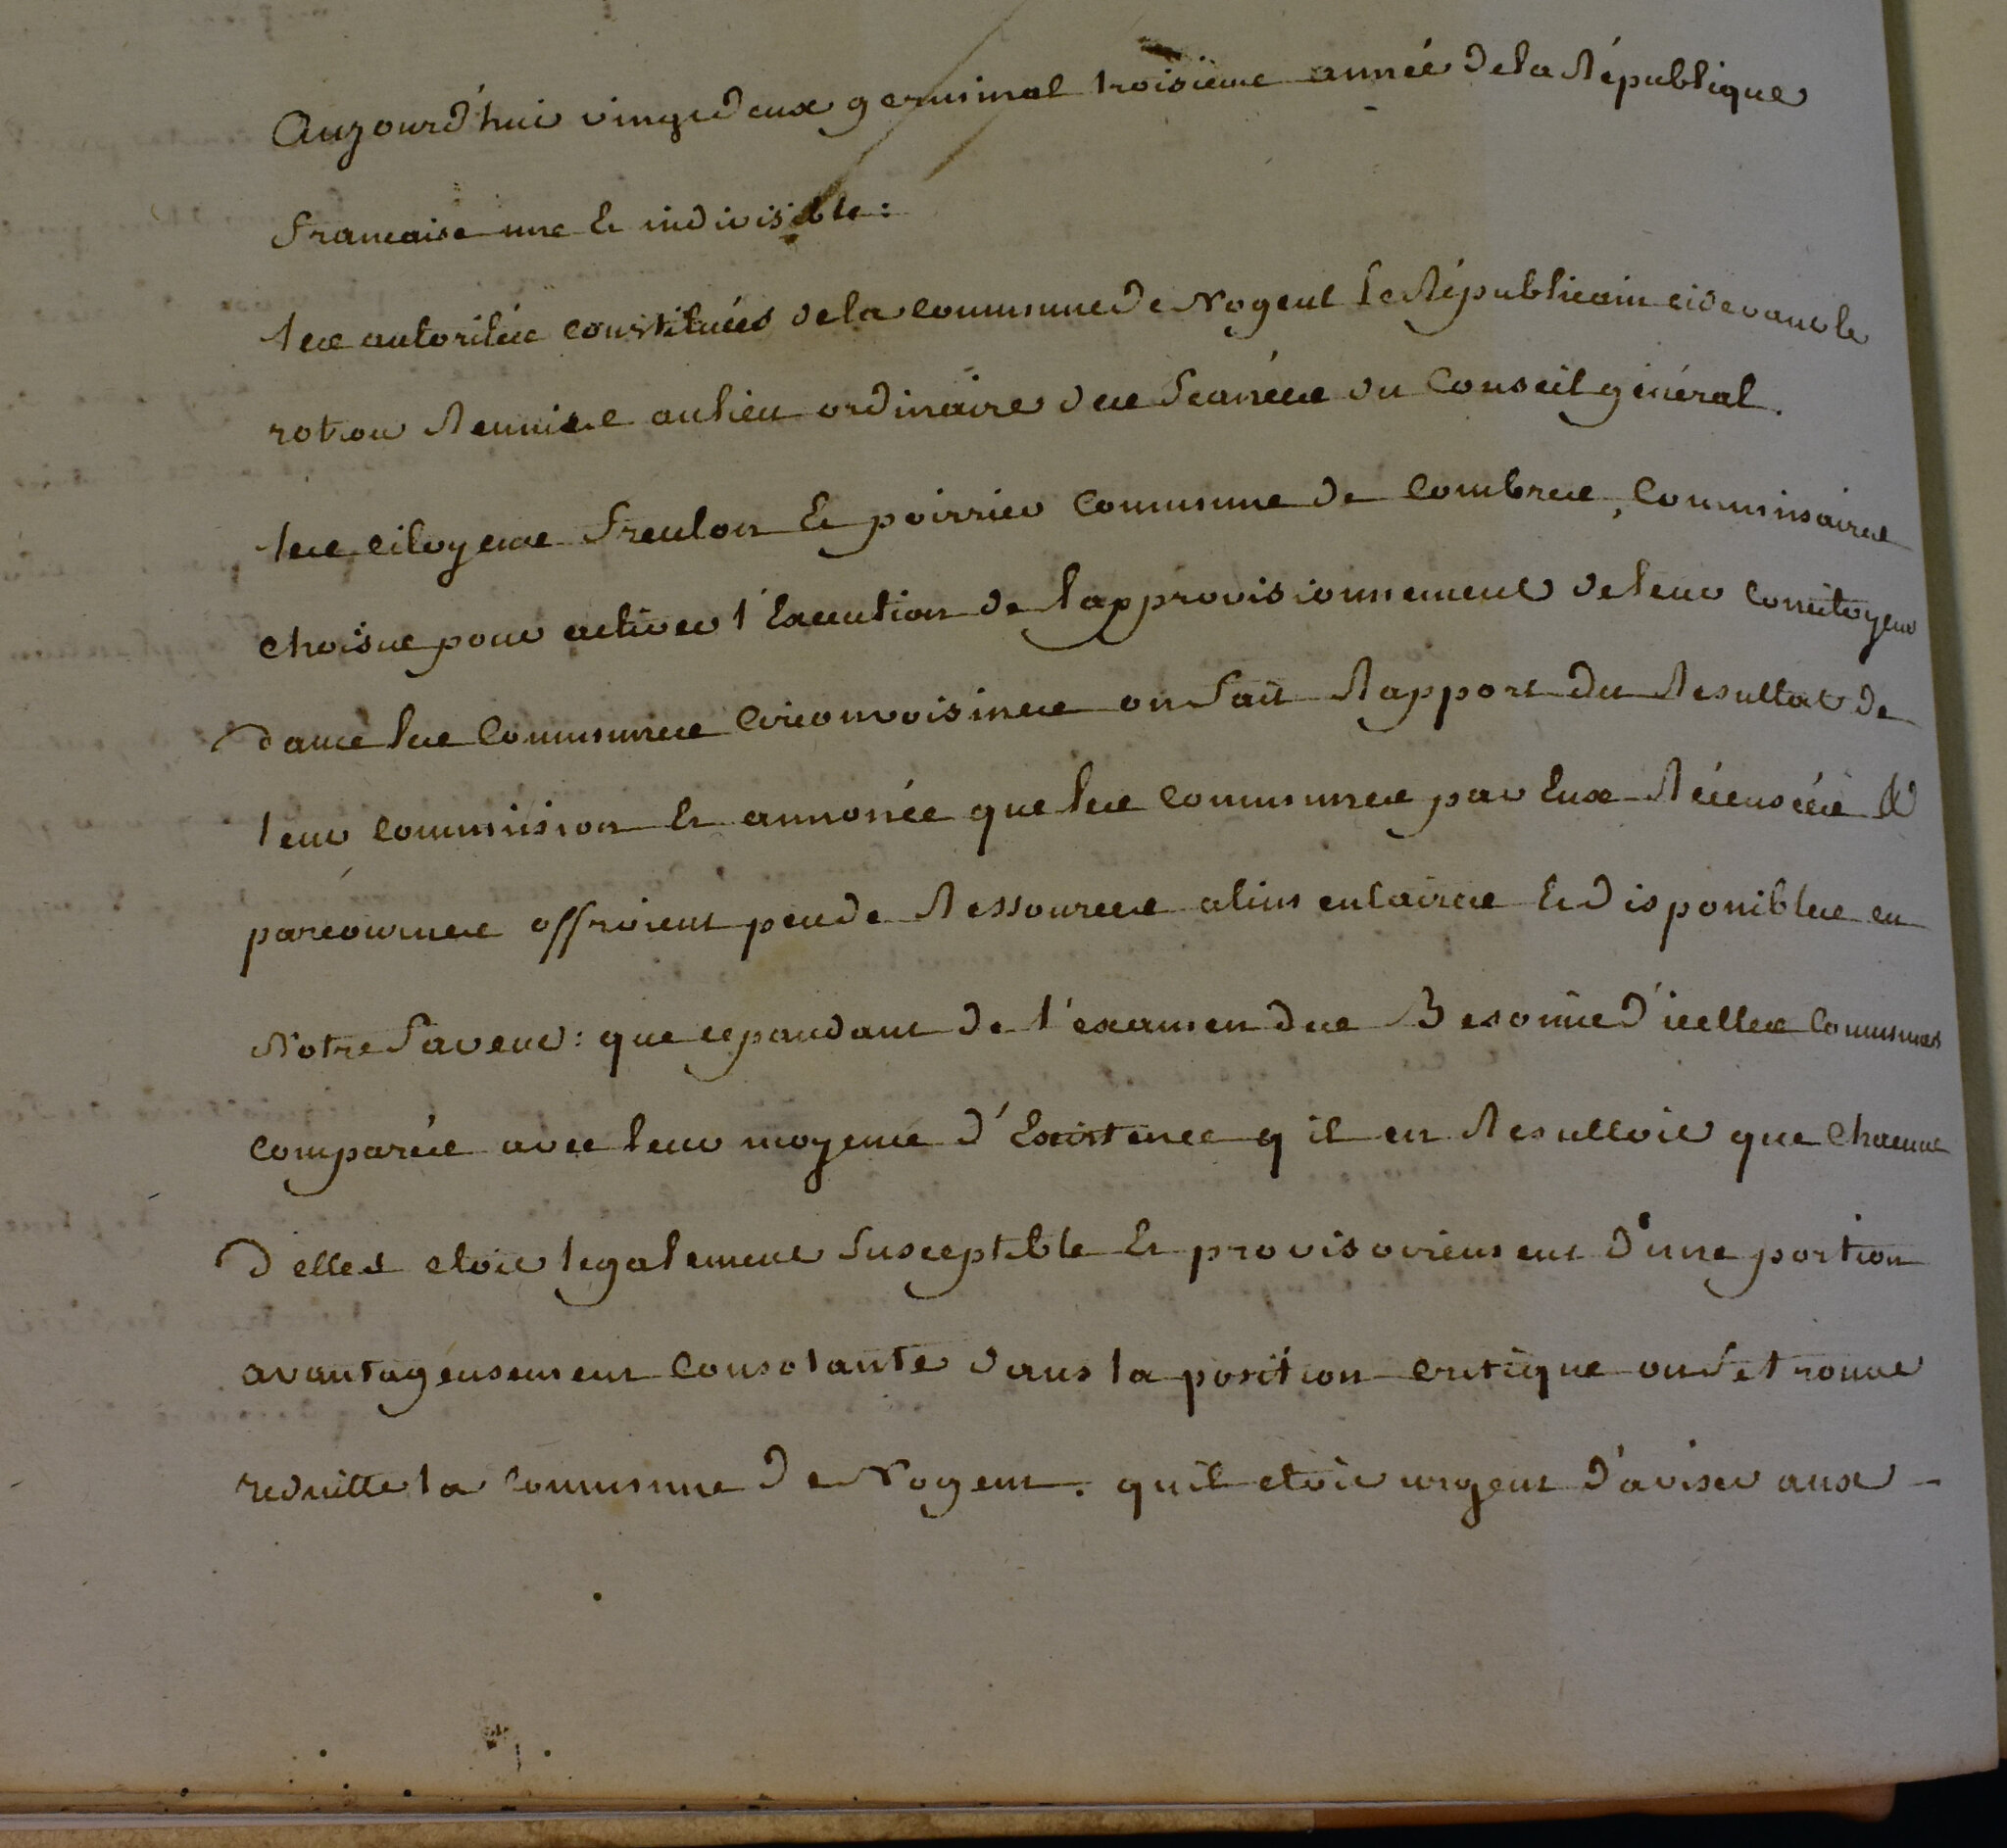 Aujourd'hui vingt deux germinal troisieme année de la République
francaise une et indivisible :
les autorités constituées de la commune de Nogent le Républicain cidevant le
rotrou Reunies au lieu ordinaire des séances du Conseil général.
les citoyens freulon et poirrier commune de Combres, Commissaires
choisis pour activer l'Execution de lapprovisionnement de leur concitoyens
dans les Communes circonvoisines on fait Rapport du Resultat de
leur commission et annoncé que les communes par Eux Récensées &
parcourues offroient peu de Ressources alimentaires et disponibles en
Notre faveur : que cepandant de l'examen des Besoins d'icelles Communes
comparés avec leur moyens d'Existence q il en Resultoit que Chacune
d elles etoit legalement Susceptible et provisoirement d'une portion
avantageusement consolante dans la position critique ou se trouve
reduitte la Commune de Nogent. quil etoit urgent d'aviser aux